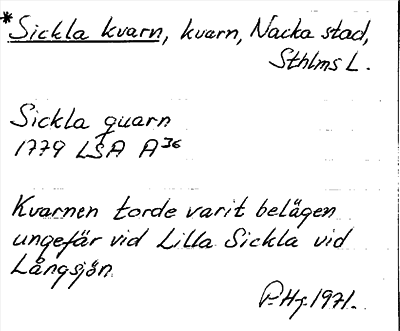 *Sickla kvarn, kvarn, Nacka stad,
Sthlms L.
Sickla quarn
1779 LSA A36
Kvarnen torde varit belägen
ungefär vid Lilla Sickla vid
Långsjön
P.Hj. 1971.